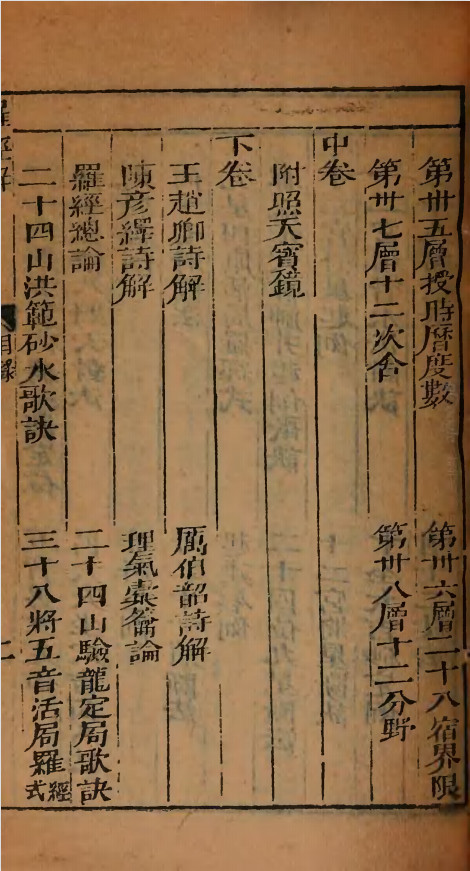 第卅五層授時曆度數
第卅六層二十八宿界限
第卅七層十二次舍
第卅八層十二分野
中卷
附照天寶鏡
下卷
王趙卿詩解
厲伯韶詩解
陳彥繹詩解
理氣橐籥論
羅經總論
二十四山驗龍定局歌訣
二十四山洪範砂水歌訣
三十八將五音活局羅經式
羅經解
目錄
二